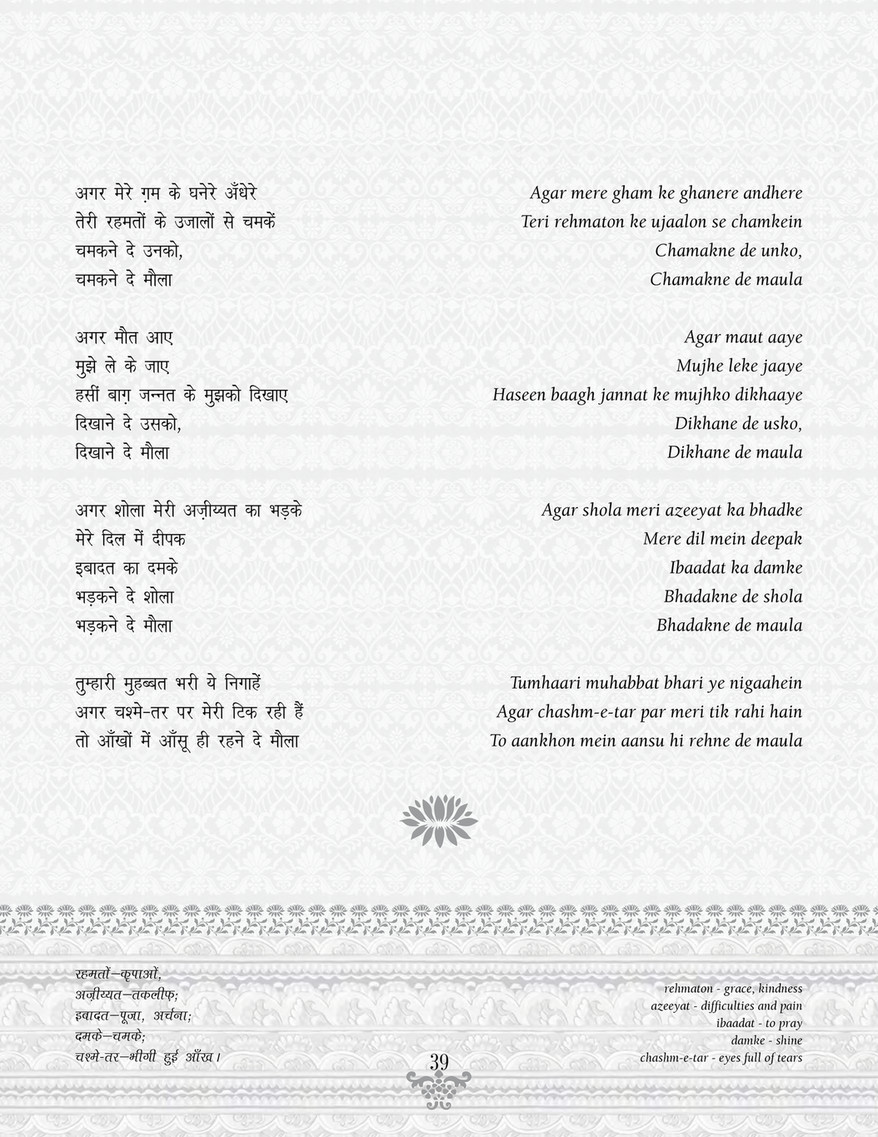 अगर मेरे ग़म के घनेरे अँधेरे
तेरी रहमतों के उजालों से चमकें
चमकने दे उनको,
चमकने दे मौला
अगर मौत आए
मुझे ले के जाए
हसीं बाग़ जन्नत के मुझको दिखाए
दिखाने दे उसको,
दिखाने दे मौला
अगर शोला मेरी अज़ीय्यत का भड़के
मेरे दिल में दीपक
इबादत का दमके
भड़कने दे शोला
भड़कने दे मौला
तुम्हारी मुहब्बत भरी ये निगाहें
अगर चश्मे-तर पर मेरी टिक रही हैं
तो आँखों में आँसू ही रहने दे मौला
Agar mere gham ke ghanere andhere
Teri rehmaton ke ujaalon se chamkein
Chamakne de unko,
Chamakne de maula
Agar maut aaye
Mujhe leke jaaye
Haseen baagh jannat ke mujhko dikhaaye
Dikhane de usko,
Dikhane de maula
Agar shola meri azeeyat ka bhadke
Mere dil mein deepak
Ibaadat ka damke
Bhadakne de shola
Bhadakne de maula
Tumhaari muhabbat bhari ye nigaahein
Agar chashm-e-tar par meri tik rahi hain
To aankhon mein aansu hi rehne de maula
रहमतों–कृपाओं,
अज़ीय्यत–तकलीफ़;
इबादत–पूजा, अर्चना;
दमके–चमके;
चश्मे-तर–भीगी हुई आँख।
rehmaton - grace, kindness
azeeyat - difficulties and pain
ibaadat - to pray
damke - shine
chashm-e-tar - eyes full of tears
39